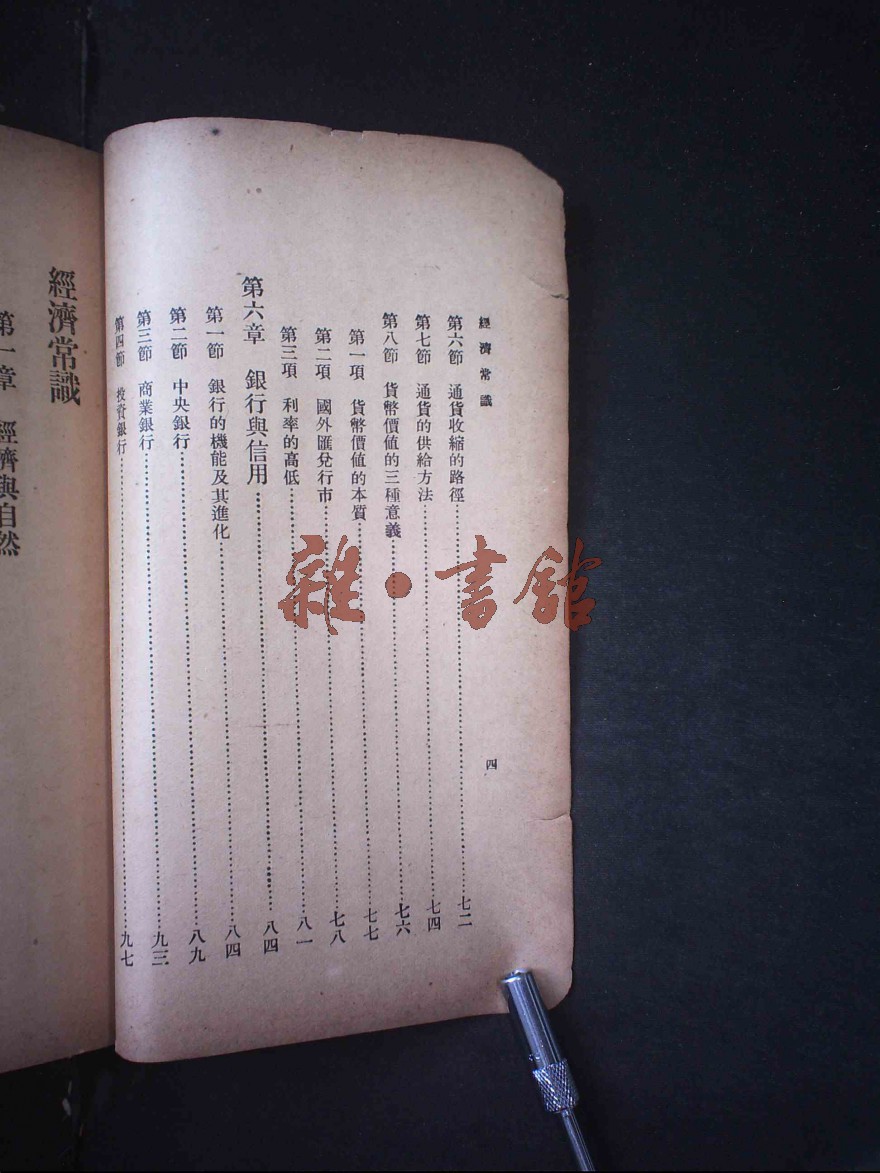 經濟常識
四
第六節 通貨收縮的路徑……七二
第七節 通貨的供給方法……七四
第八節 貨幣價值的三種意義……七六
第一項 貨幣價值的本質……七七
第二項 國外匯兌行市……七八
第三項 利率的高低……八一
第六章 銀行與信用……八四
第一節 銀行的機能及其進化……八四
第二節 中央銀行……八九
第三節 商業銀行……九三
第四節 投資銀行……九七
經濟常識
第一章 經濟與自然
雜·書館